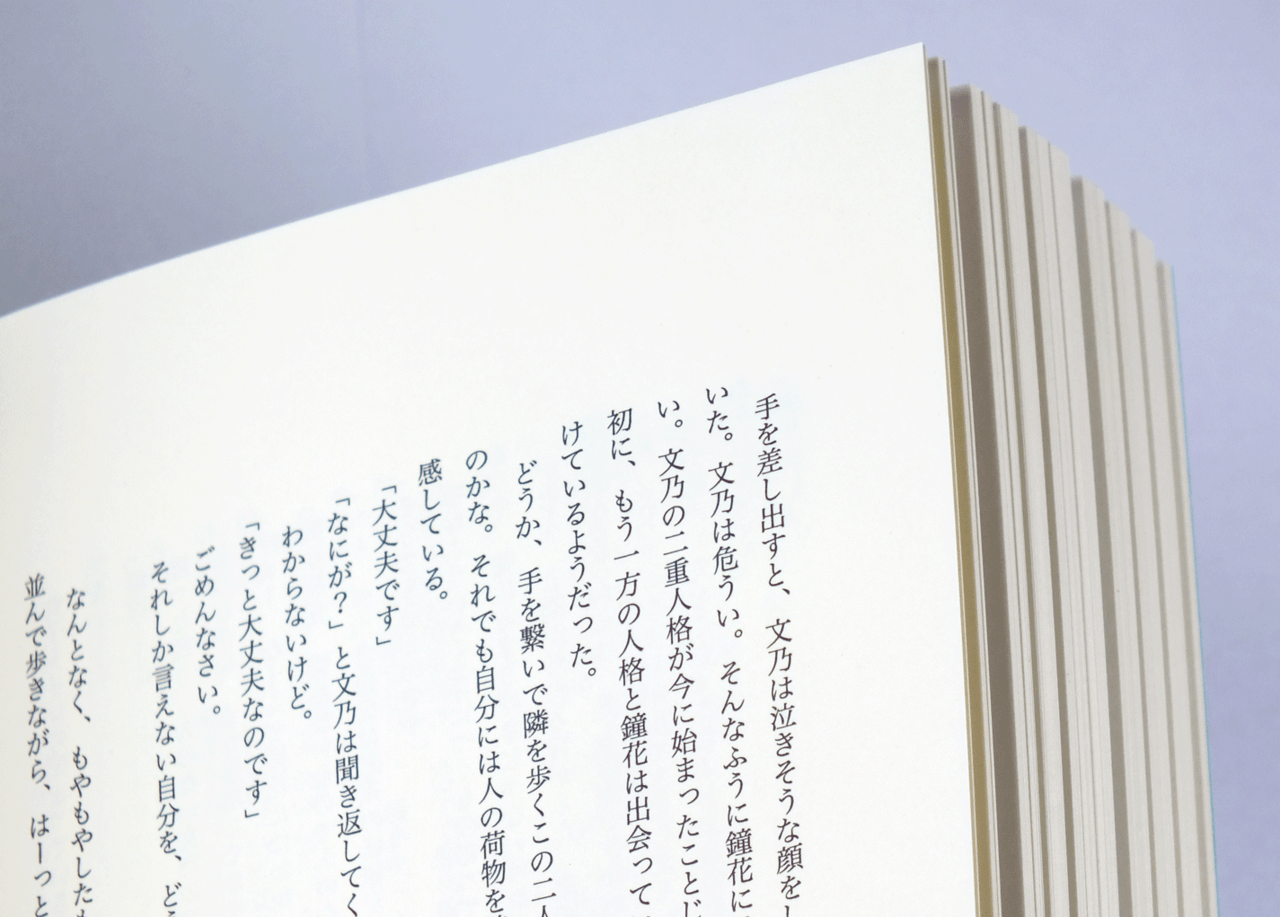 手を差し出すと、文乃は泣きそうな顔をし
いた。文乃は危うい。そんなふうに鐘花に
い。文乃の二重人格が今に始まったことじ
初に、もう一方の人格と鐘花は出会って
けているようだった。
どうか、手を繋いで隣を歩くこの二人
のかな。それでも自分には人の荷物を
感している。
「大丈夫です」
「なにが？」と文乃は聞き返してく
わからないけど。
「きっと大丈夫なのです」
ごめんなさい。
それしか言えない自分を、ど
なんとなく、もやもやした
並んで歩きながら、はーっと